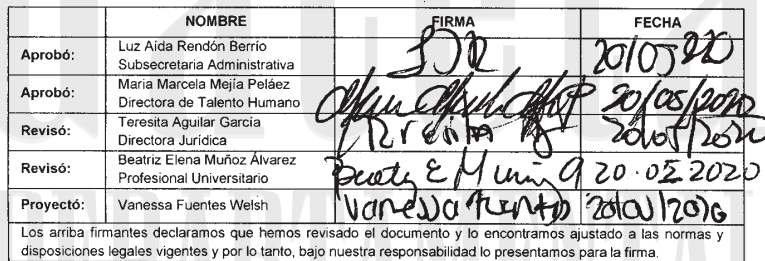 NOMBRE FIRMA FECHA
Aprobó: Luz Aida Rendón Berrío
Subsecretaria Administrativa 20/05/2020
Aprobó: Maria Marcela Mejía Peláez
Directora de Talento Humano 20/05/2020
Revisó: Teresita Aguilar García
Directora Jurídica 20/05/2020
Revisó: Beatriz Elena Muñoz Álvarez
Profesional Universitario Beatriz E Muñoz A 20.05.2020
Proyectó: Vanessa Fuentes Welsh Vanessa Fuentes
Los arriba firmantes declaramos que hemos revisado el documento y lo encontramos ajustado a las normas y
disposiciones legales vigentes y por lo tanto, bajo nuestra responsabilidad lo presentamos para la firma.